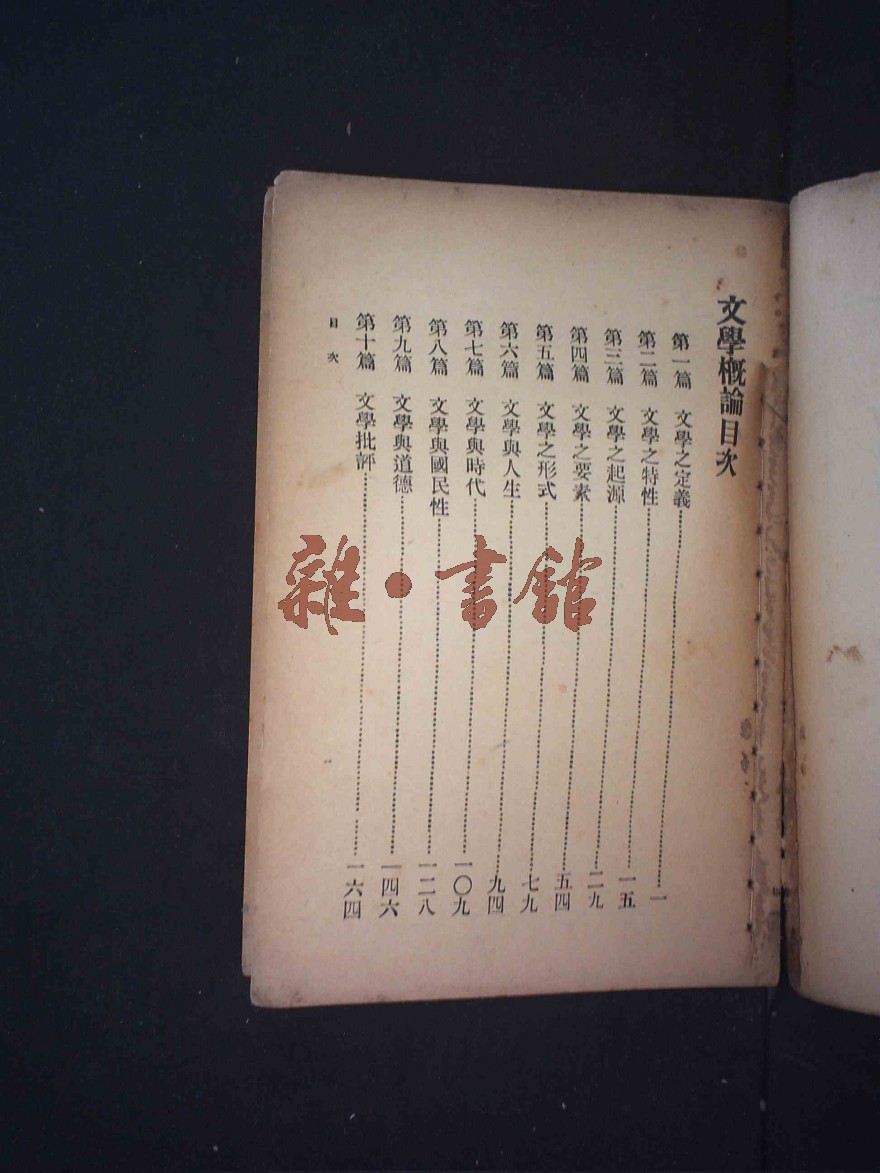 文學概論目次
第一篇 文學之定義……一
第二篇 文學之特性……一五
第三篇 文學之起源……二九
第四篇 文學之要素……五四
第五篇 文學之形式……七九
第六篇 文學與人生……九四
第七篇 文學與時代……一〇九
第八篇 文學與國民性……一二八
第九篇 文學與道德……一四六
第十篇 文學批評……一六四
目次
雜·書館